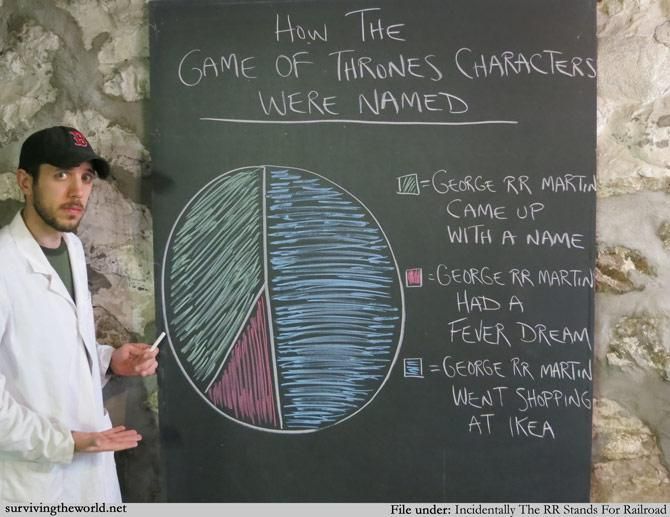 HOW THE
GAME OF THRONES CHARACTERS
WERE NAMED
=GEORGE RR MARTIN
CAME UP
WITH A NAME
=GEORGE RR MARTIN
HAD A
FEVER DREAM
=GEORGE RR MARTIN
WENT SHOPPING
AT IKEA
B
survivingtheworld.net
File under: Incidentally The RR Stands For Railroad